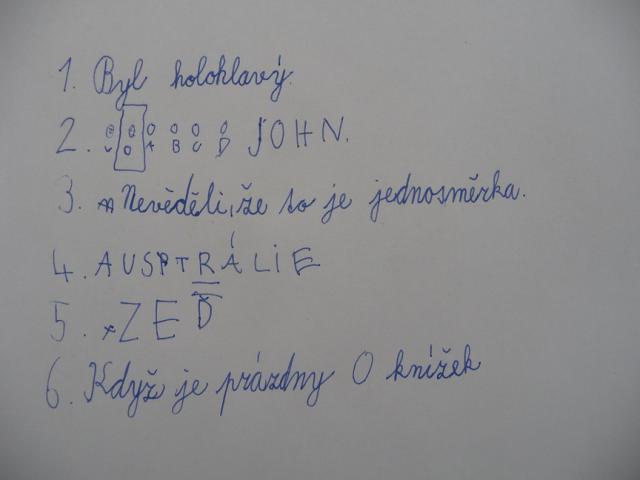 1. Byl holohlavý.
2. JOHN.
3. Nevěděli, že to je jednosměrka.
4. AUSPTRÁLIE
5. ZEĎ
6. Když je prázdny 0 knížek